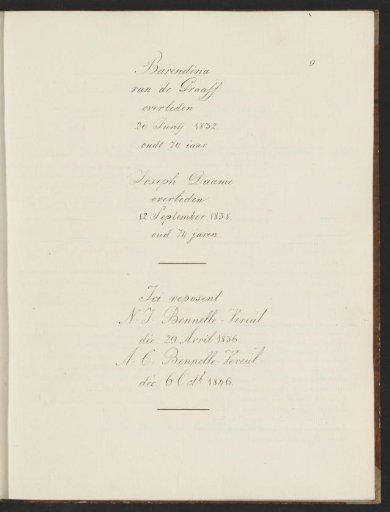 9
Barendina
van de Graaff
overleden
20 Juny 1832
oudt 70 iaar
Joseph Daame
overleden
12 September 1838
oud 74 jaren
Ici reposent
N. J. Bennelle-Vereul
déc. 29 Avril 1836
A. C. Bennelle-Vereul
déc. 6 Oct. 1846.